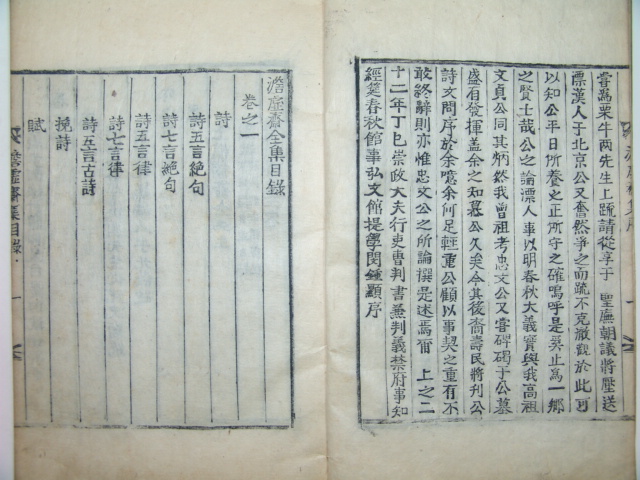 嘗爲栗牛兩先生上疏請從享于 聖廡朝議將壓送
漂漢人于北京公又奮然爭之而疏不克澈觀於此可
以知公平日所養之正所守之確嗚呼是奚止爲一鄕
之賢士哉公之論漂人事以明春秋大義實與我高祖
文貞公同其炳然我曾祖考忠文公又嘗碑碣于公墓
盛有發揮盖余之知慕公久矣今其後裔壽民將刊公
詩文問序於余噫余何足輕重公顧以事契之重有不
敢終辭則亦惟忠文公之所論撰是述焉甭 上之二
十二年丁巳崇政大夫行吏曺判書兼判義禁府事知
經筵春秋館事弘文館提學閔鍾顯序
澹虛齋全集目錄
卷之一
詩
詩五言絕句
詩七言絕句
詩五言律
詩七言律
詩五言古詩
挽詩
賦
虛齋集目錄
一